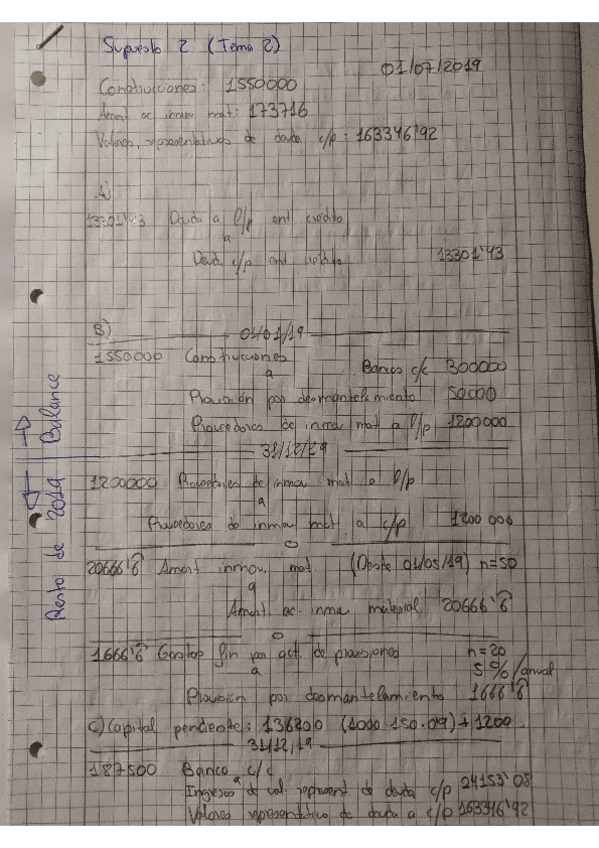 Supuesto 2 (Tema 2)
01/07/2019
Construcciones: 1550000
Amort ac inmov mat: 173716
Valores representativos de deuda c/p: 163346'92
A)
13301'43 Deuda a l/p ent crédito
a
Deud c/p ent crédito 13301'43
B)
01/01/19
1550000 Construcciones
a
Bancos c/c 300000
Provisión por desmantelamiento 50000
Proveedores de inmov mat a l/p 1200000
31/12/19
1200000 Proveedores de inmov mat a l/p
a
Proveedores de inmov mat a c/p 1200 000
20666'6 Amort inmov. mat. (Desde 01/05/19) n=50
a
Amort. ac. inmov material 20666'6
1666'6 Gastos fin por act. de provisiones n=20
a
5%/anual
Provisión por desmantelamiento 1666'6
C) Capital pendiente: 136200 (1000·150·0,9)+1200
31/12/19
187500 Banco c/c
a
Ingresos de val. represent de deuda c/p 24153'08
Valores representativo de deuda a c/p 163346'92
Balance
Resto de 2019